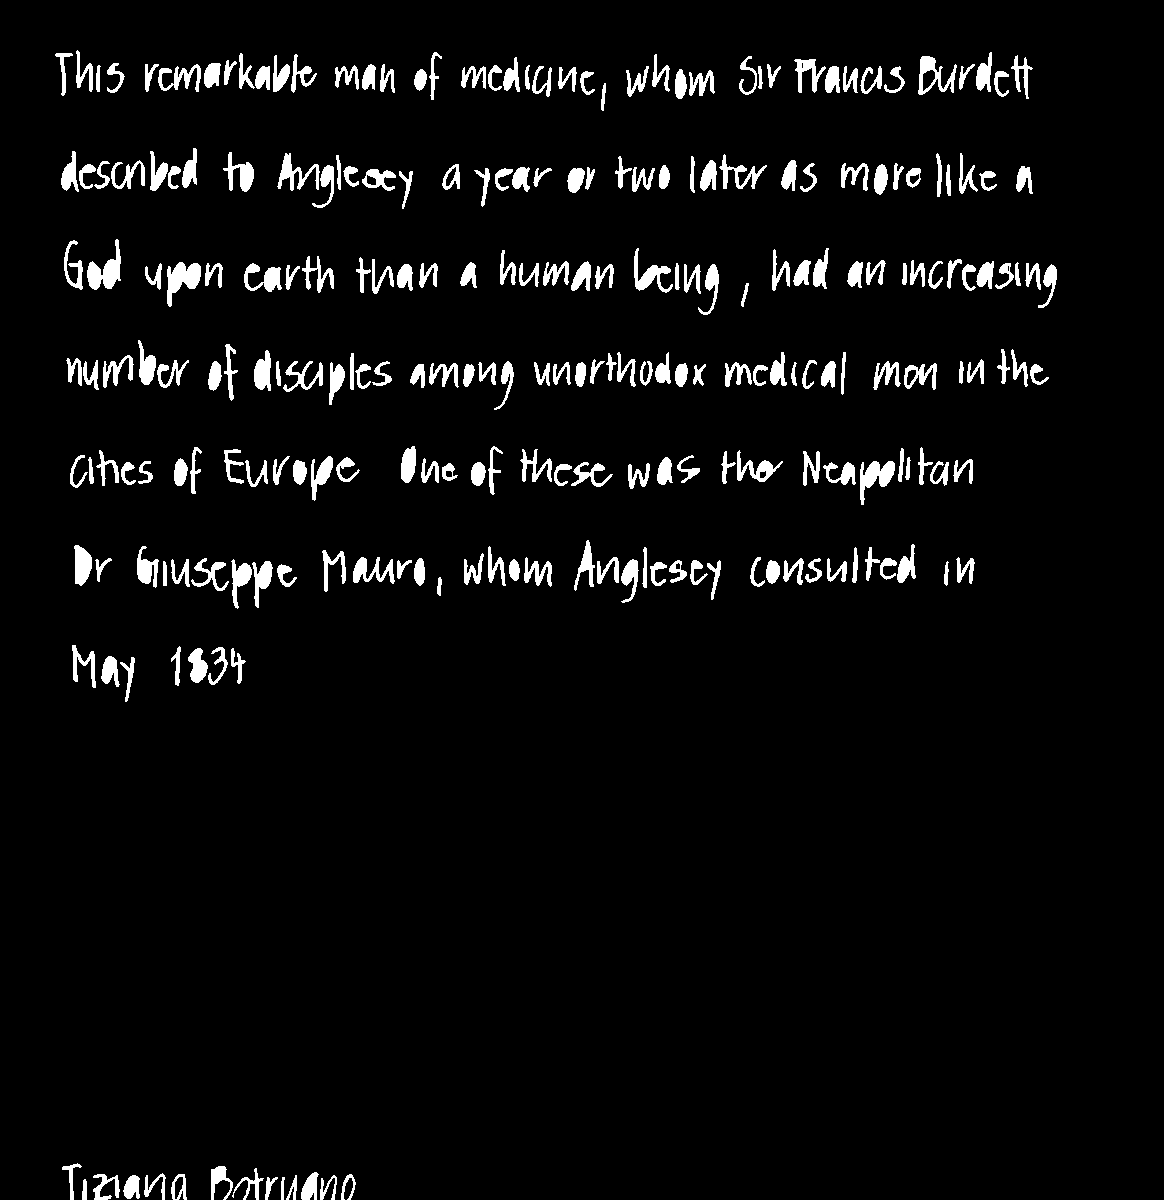 This remarkable man of medicine, whom Sir Francis Burdett
described to Anglesey a year or two later as more like a
God upon earth than a human being, had an increasing
number of disciples among unorthodox medical men in the
cities of Europe One of these was the Neapolitan
Dr Giuseppe Mauro, whom Anglesey consulted in
May 1834
Tiziana Botrugno